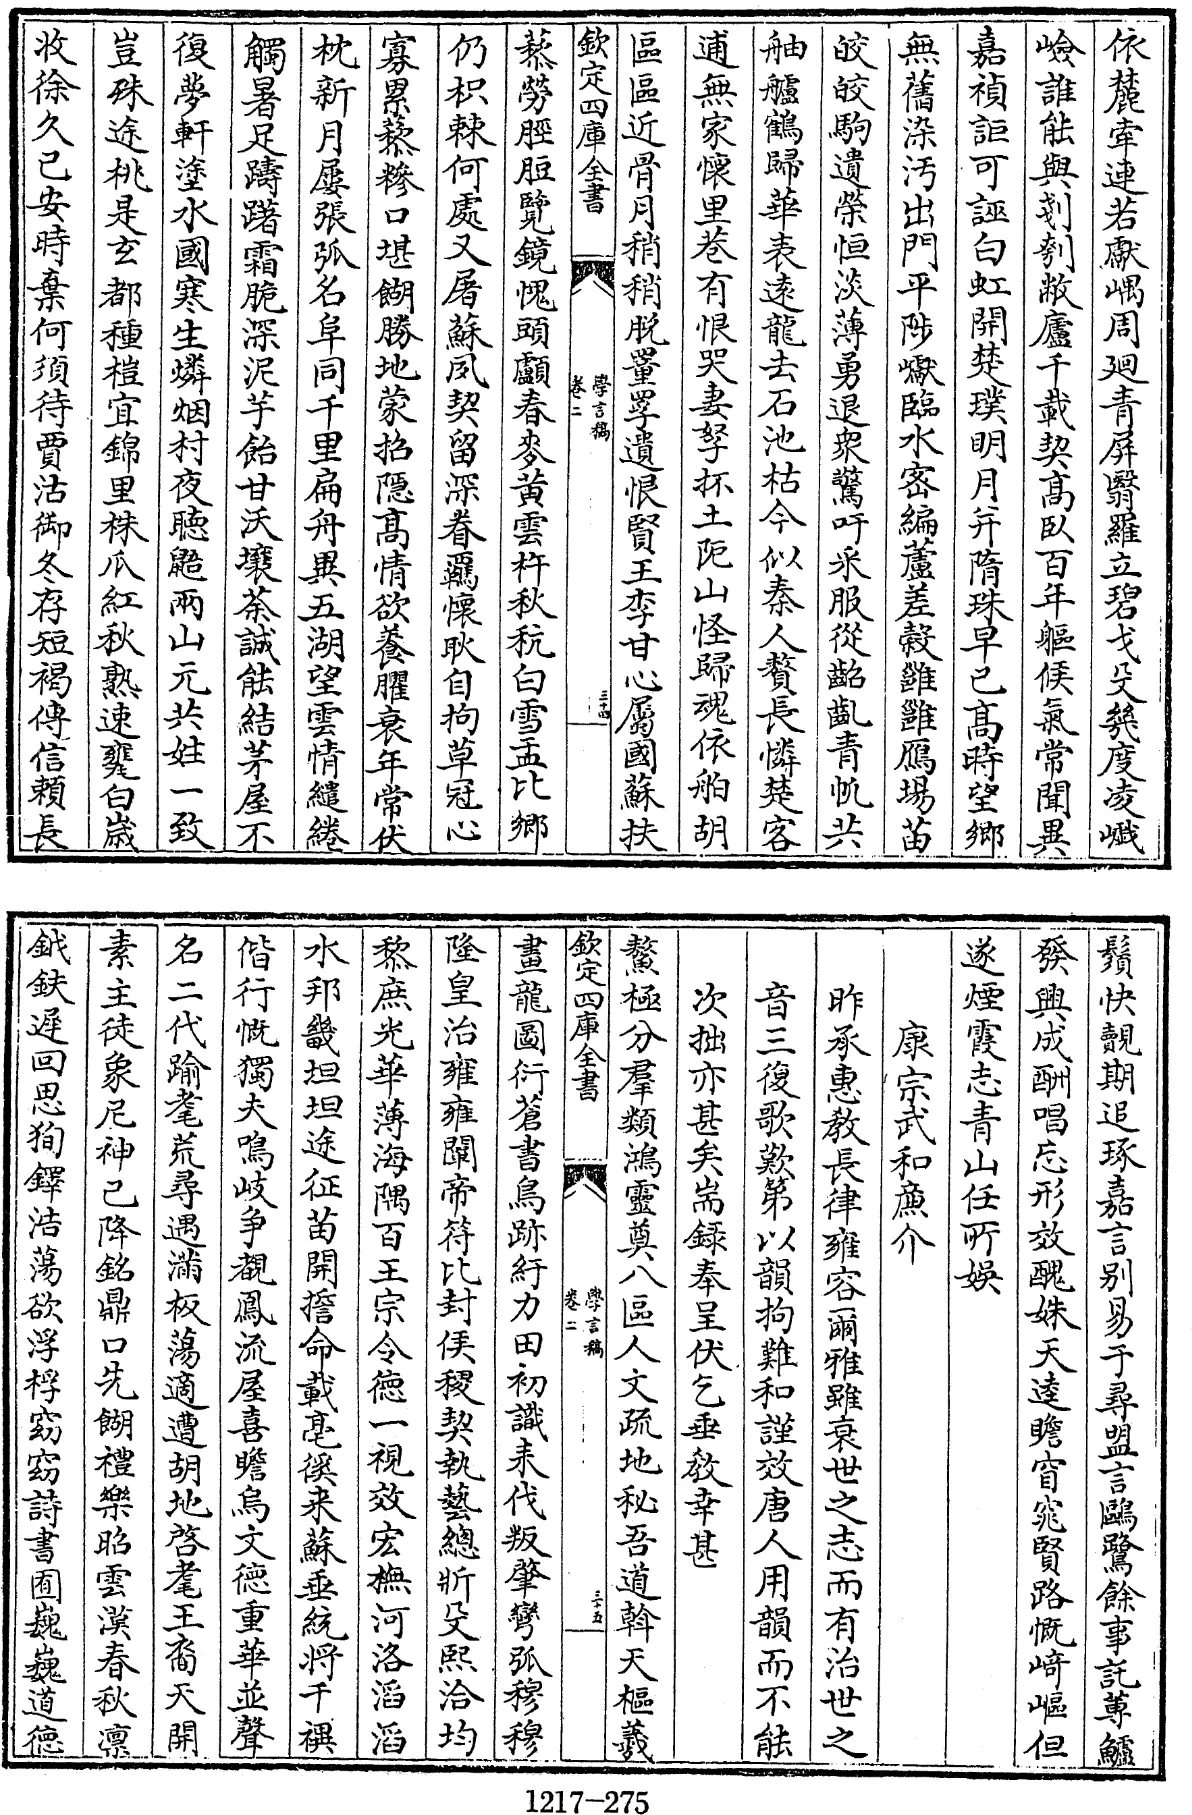 依麓牽連若獻嵎周廻青屏翳羅立碧戈殳幾度凌巇
嶮誰能與剗刳敝廬千載契高臥百年軀候氣常聞異
嘉禎詎可誣白虹開楚璞明月弁隋珠早已高時望鄉
無舊染汚出門平陟巘臨水密編蘆差縠雝雝鴈場苗
皎皎駒遺榮恒淡薄勇退衆驚吁采服從齠齓青帆共
舳艫鶴歸華表遠龍去石池枯今似秦人贅長憐楚客
逋無家懷里巷有恨哭妻孥抔土阨山怪歸魂依舶胡
區區近骨月稍稍脱罿罦遺恨賢王李甘心屬國蘇扶
欽定四庫全書
學言稿
卷二
三十四
藜勞脛胆覽鏡愧頭顱春麥黄雲杵秋秔白雪盂比鄉
仍枳棘何處又屠蘇夙契留深眷羈懷耿自拘草冠心
寡累藜糝口堪餬勝地蒙招隱高情欲養臞衰年常伏
枕新月屢張弧名阜同千里扁舟異五湖望雲情繾綣
觸暑足躊躇霜脆深泥芋飴甘沃壤荼誠能結茅屋不
復夢軒塗水國寒生燐烟村夜聽鼯兩山元共姓一致
豈殊途桃是玄都種榿宜錦里株瓜紅秋熟速甕白歳
收徐久已安時棄何須待賈沽御冬存短褐傳信頼長
鬚快覿期追琢嘉言别易于尋盟言鷗鷺餘事託蓴鱸
發興成酬唱忘形效醜姝天逵瞻窅窕賢路慨﨑嶇但
遂煙霞志青山任所娛
康宗武和㢘介
昨承惠教長律雍容爾雅雖衰世之志而有治世之
音三復歌歎第以韻拘難和謹效唐人用韻而不能
次拙亦甚矣耑録奉呈伏乞垂敎幸甚
鰲極分羣類鴻靈奠八區人文疏地秘吾道斡天樞羲
欽定四庫全書
學言稿
卷二
三十五
畫龍圖衍蒼書鳥跡紆力田初識耒伐叛肇彎弧穆穆
隆皇治雍雍闡帝符比封俟稷契執藝總斨殳熙洽均
黎庶光華薄海隅百王宗令德一視效宏橅河洛滔滔
水邦畿坦坦途征苗開擔命載亳徯来蘇垂統将千禩
偕行慨獨夫鳴岐争覩鳳流屋喜瞻烏文德重華並聲
名二代踰耄荒尋遇滿板蕩適遭胡地啓耄王裔天開
素主徒象尼神已降銘鼎口先餬禮樂昭雲漢春秋凛
鉞鈇遲回思狥鐸浩蕩欲浮桴窈窈詩書囿巍巍道德
1217-275